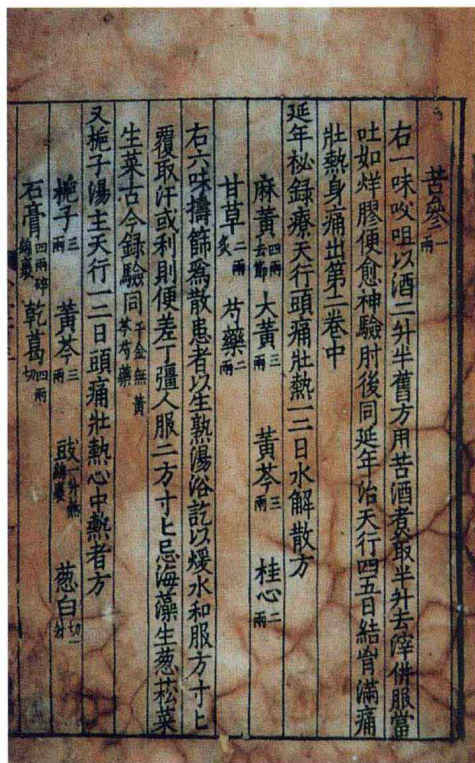 苦參一兩
右一味㕮咀以酒二升半舊方用苦酒煮取半升去滓併服當
吐如烊膠便愈神驗肘後同延年治天行四五日結胷滿痛
壯熱身痛出第二卷中
延年秘録療天行頭痛壯熱一二日水解散方
麻黃四兩去節 大黃三兩 黃芩三兩 桂心二兩
甘草二兩炙 芍藥二兩
右六味擣篩爲散患者以生熟湯浴訖以煖水和服方寸匕
覆取汗或利則便差丁彊人服二方寸匕忌海藻生葱菘菜
生菜古今録驗同千金無黃芩芍藥
又梔子湯主天行一二日頭痛壯熱心中熱者方
梔子三兩 黃芩三兩 豉一升熬綿裹 葱白切一升
石膏四兩碎綿裹 乾葛四兩切